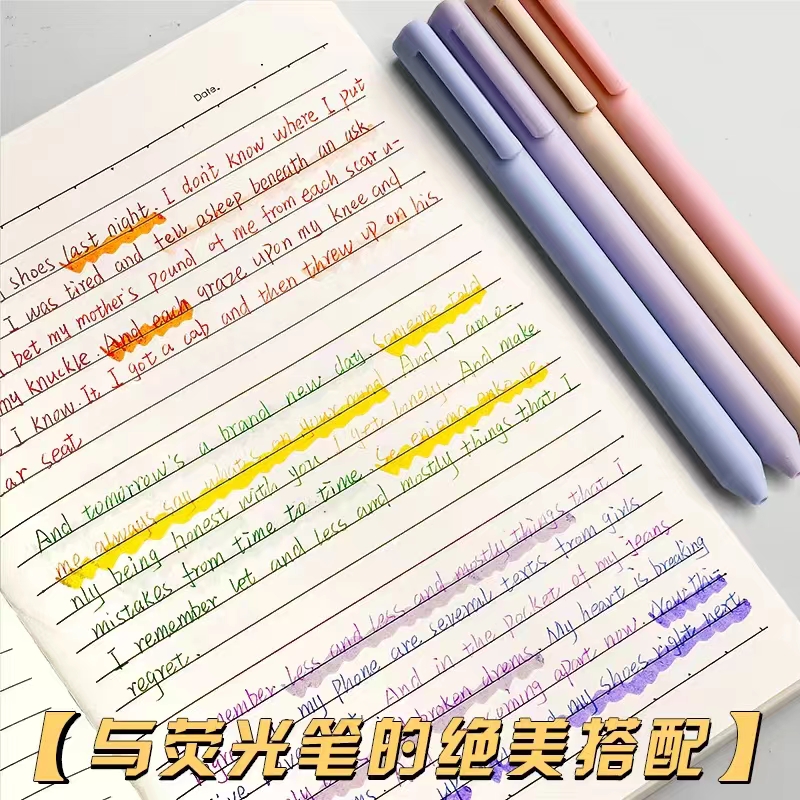 Date.
shoes last night. I don't know where I put
I was tired and fell asleep beneath an ask
bet my mother's pound of me from each scar u-
my knuckle. And each graze upon my knee and
I know. It, I got a cab and then threw up on his
ar seat
And tomorrow's a brand new day. Someone told
me always say what's on your mind And I am o-
nly being honest with you I get lonely. And make
mistakes from time to time.
I remember let and less and mostly things that I
regret.
member less and less and mostly things that I
my phone are several texts from girls
And in the pocket of my jeans
broken drems. My heart is breaking
coming apart now. Now thi-
my shoes right next
【与荧光笔的绝美搭配】